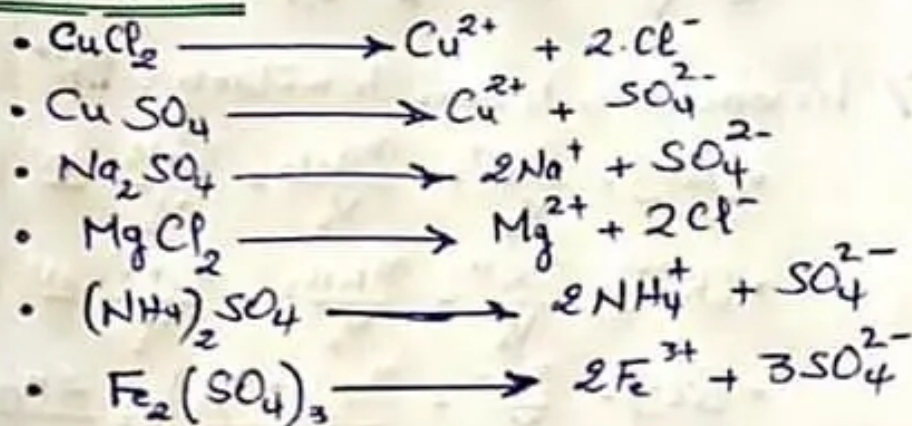 • CuCl₂ ⟶ Cu²⁺ + 2.Cl⁻
• CuSO₄ ⟶ Cu²⁺ + SO₄²⁻
• Na₂SO₄ ⟶ 2Na⁺ + SO₄²⁻
• MgCl₂ ⟶ Mg²⁺ + 2Cl⁻
• (NH₄)₂SO₄ ⟶ 2NH₄⁺ + SO₄²⁻
• Fe₂(SO₄)₃ ⟶ 2Fe³⁺ + 3SO₄²⁻